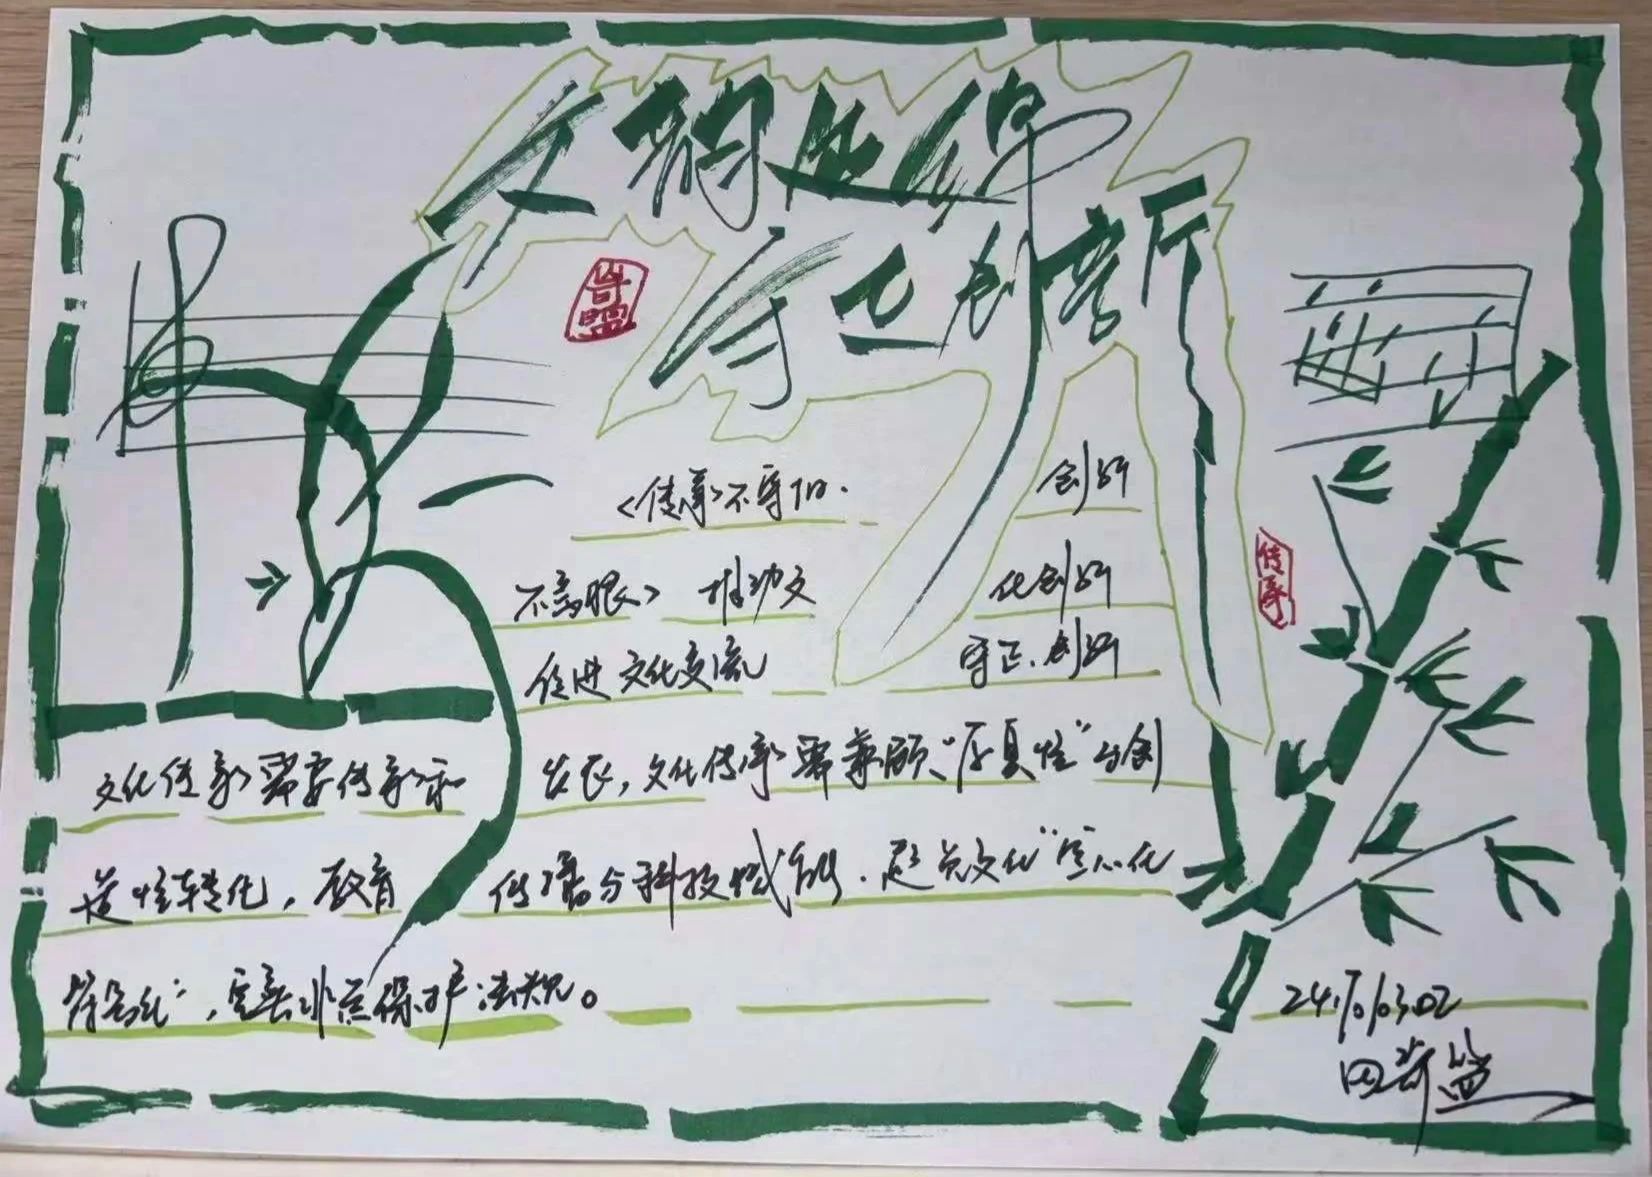 文韵延绵
守正创新
奇盟
《传承》不守旧.
创新
不忘根》 推动文
化创新
促进文化交流
守正.创新
传承
文化传承需要传承和
发展,文化传承需兼顾“原真性”与创
造性转化,教育
传播与科技赋能.避免文化“空心化
符号化”,完善非遗保护法规。